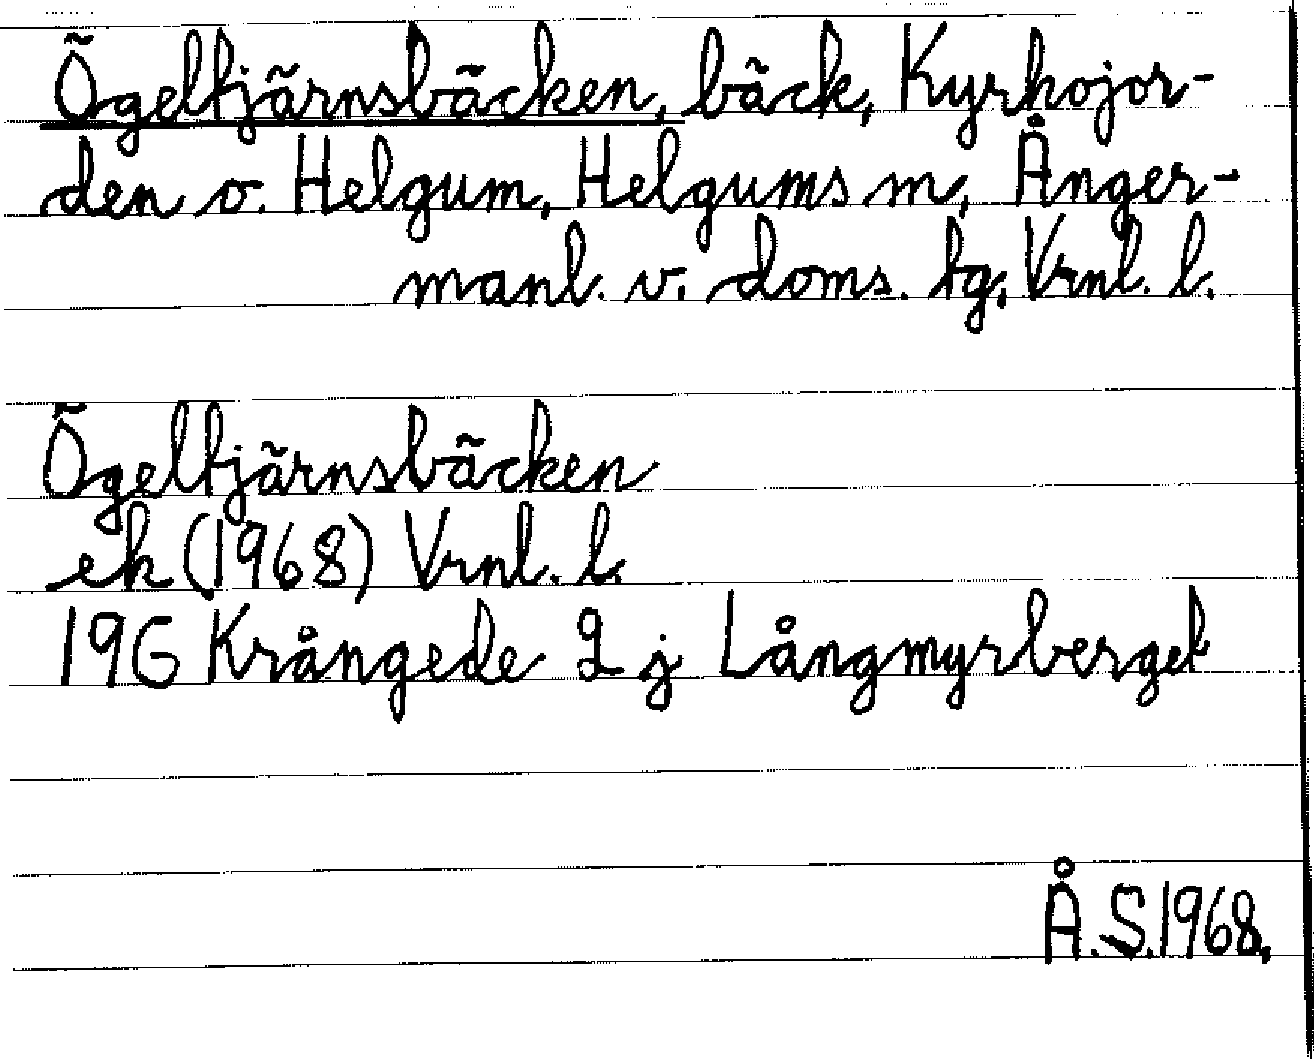 Ögeltjärnsbäcken, bäck, Kyrkojor-
den o. Helgum, Helgums sn, Ånger-
manl. v. doms. tg, Vrnl. l.
Ögeltjärnsbäcken
ek (1968) Vrnl. l.
19G Krångede 2 j Långmyrberget
Å.S.1968.